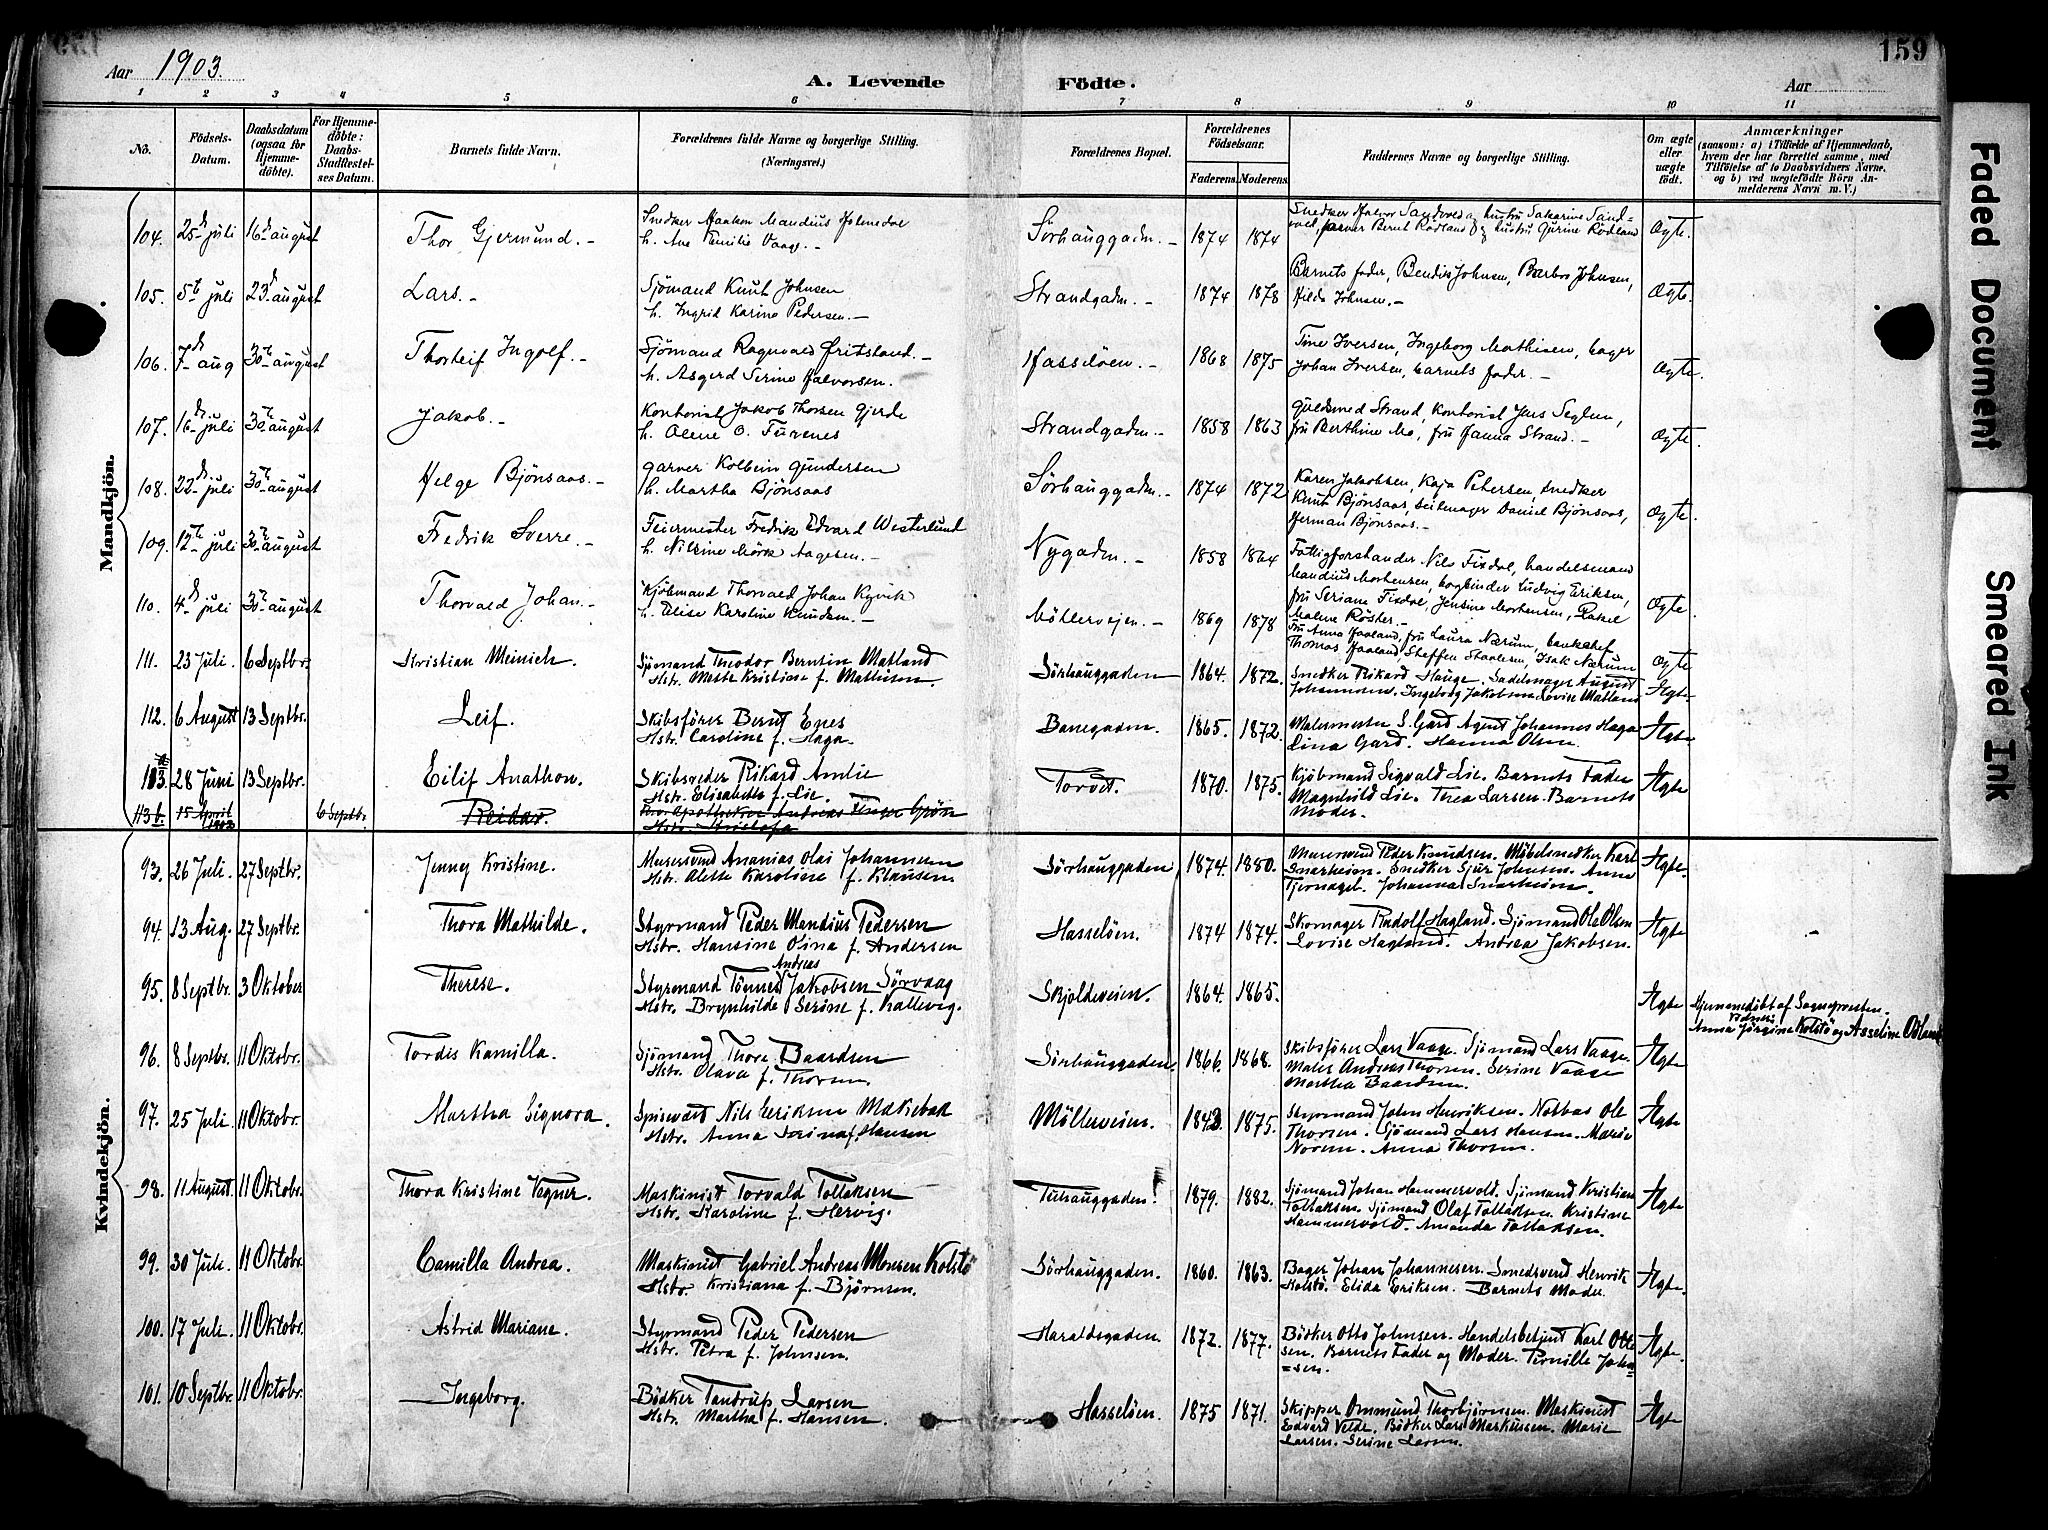 159
Aar 1903.
A. Levende Födte.
Aar
1 2 3 4 5 6 7 8 9 10 11
No.
Födsels-
Datum.
Daabsdatum
(ogsaa for
Hjemme-
döbte).
For Hjemme-
döbte:
Daabs-
Stadfæstel-
ses Datum.
Barnets fulde Navn.
Forældrenes fulde Navne og borgerlige Stilling.
(Næringsvei.)
Forældrenes Bopæl.
Forældrenes
Födselsaar.
Faderens. Moderens.
Faddernes Navne og borgerlige Stilling.
Om ægte
eller
uægte
födt.
Anmærkninger
(saasom: a) i Tilfælde af Hjemmedaab,
hvem der har forrettet samme, med
Tilföielse af to Daabsvidners Navne,
og b) ved uægtefödte Börn An-
melderens Navn m. V.)
Mandkjön.
104. 25 juli 16 august Thor Gjermund.-
Snedker Haaken Mandius Holmedal
h. Ane Emilie Vaage.-
Sörhauggadn.- 1874 1874
Snedker Halvor Sandved og hustru Sakarine Sand-
ved, farver Bernt Rödland og hustru Gjerine Rödland
Ægte.
105. 5te juli 23d august Lars.-
Sjömand Knut Johnsen
h. Ingrid Karine Pedersen.-
Strandgadn.- 1874 1878
Barnets fader, Bendix Johnsen, Barbro Johnsen,
Hilda Johnsen.-
Ægte.
106. 7 aug 30te august Thorleif Ingolf.-
Sjömand Ragnvald Fritsland.-
h. Asgerd Serine Halvorsen.
Hasselöen.- 1868 1875
Tine Iversen, Ingeborg Mathisen, bager
Johan Iversen, barnets fader.-
Ægte.
107. 16 juli 30te august Jakob.-
Kontorist Jakob Thorsen Gjerde
h. Olene O. Turenes
Strandgadn.- 1858 1863
Guldsmed Strand, Kontorist Jens Seglem,
fru Berthine Mo, fru Hanna Strand.-
Ægte.
108. 22 juli 30te august Helge Bjönsaas.-
Garver Kolbein Gundersen
h. Martha Bjönsaas
Sörhauggadn.- 1874 1872
Karen Jakobsen, Kaja Petersen, snedker
Knut Bjönsaas, seilmager Daniel Bjönsaas,
Herman Bjönsaas.-
Ægte.
109. 12te juli 30te august Fredrik Sverre.-
Feiermester Fredrik Edvard Westerlund
h. Nilsine Mörk Aagesen.-
Nygadn.- 1858 1864
Fattigforstander Nils Fixdal, handelsmand
Mandius Mortensen, bogbinder Ludvig Eriksen,
fru Seriane Fixdal, Jensine Mortensen, Rakel
Malene Röster.-
Ægte.
110. 4 juli 30te august Thorvald Johan.-
Kjöbmand Thorvald Johan Kyvik
h. Elise Karoline Knudsen.-
Möllervejen.- 1869 1878
Fru Anna Haaland, fru Laura Nærum, bankchef
Thomas Haaland, Steffen Staalesen, Isak Nærum
Ægte
111. 23 Juli. 6 Septbr. Kristian Meinich.
Sjömand Theodor Berntin Matland
Hstr. Mette Kristine f. Mathisen.
Sörhauggaden 1864. 1872.
Snedker Rikard Hauge. Sadelmager August
Johannesen. Ingeborg Jakobsen Lovise Matland
Ægte.
112. 6 August 13 Septbr. Leif.
Skibsförer Bernt Enes
Hstr. Caroline f. Haga.
Banegaden. 1865. 1872.
Malermester S. Gard Agent Johannes Haga
Lina Gard. Hanna Olsen.
Ægte
113 a 28 Juni 13 Septbr. Eilif Anathon.
Skibsreder Rikard Amlie
Hstr. Elisabeth f. Lie.
Torvet. 1870. 1875.
Kjöbmand Sigvald Lie. Barnets Fader
Magnhild Lie. Thea Larsen. Barnets
Moder.
Ægte
113 b. 15 April 1903 6 Septbr. Reidar.
Hstr.
Kvindekjön.
93. 26 Juli. 27 Septbr. Jenney Kristine.
Murersvend Ananias Olai Johannesen
Hstr. Alette Karoline f. Klausen
Sörhauggaden 1874. 1880.
Murersvend Peder Knudsen. Möbelsnedker Karl
Snarheim. Snedker Sjur Johnsen. Anna
Tjernagel. Johanna Snarheim.
Ægte.
94. 13 Aug. 27 Septbr. Thora Mathilde.
Styrmand Peder Mandius Pedersen
Hstr. Hansine Oina f. Andersen
Hasselöen. 1874 1874.
Skomager Rudolf Hagland. Sjömand Ole Olsen
Lovise Hagland. Andrea Jakobsen.
Ægte
95. 8 Septbr. 3 Oktober Therese.
Andreas
Styrmand Tönnes Jakobsen Sörvaag
Hstr. Brynhilde Serine f. Kallevig.
Skjoldveien. 1864. 1865.
Ægte
Hjemmedöbt af Sogneprosten.
Vidner:
Anna Jörgine Kolstö og Asseline Odland
96. 8 Septbr. 11 Oktobr. Tordis Kamilla.
Sjömand Thore Baardsen
Hstr. Olava f. Thorsen.
Sörhauggaden. 1866. 1868.
Skibsförer Lars Vaage. Sjömand Lars Vaage.
Maler Andreas Thorsen. Serine Vaage
Martha Baardsen.
Ægte
97. 25 Juli. 11 Oktobr. Martha Signora.
Spisevært Nils Eriksen Møksbak
Hstr. Anna Serina f. Hansen
Mölleveien. 1843. 1875.
Styrmand John Henriksen. Notbas Ole
Thorsen. Sjömand Lars Hansen. Marie
Noren. Anna Thorsen.
Ægte
98. 11 August. 11 Oktobr. Thora Kristine Vegner.
Maskinist Torvald Tollaksen
Hstr. Karoline f. Hervig.
Tuhauggaden. 1879. 1882.
Sjömand Johan Hammervold. Sjömand Kristian
Tollaksen. Sjömand Olaf Tollaksen. Kristine
Hammervold. Amanda Tollaksen.
Ægte
99. 30 Juli. 11 Oktobr. Camilla Andrea.
Maskinist Gabriel Andreas Monsen Kolstö
Hstr. Kristiana f. Björnsen.
Sörhauggaden. 1860. 1863.
Bager Johan Johannesen. Smedsvend Henrik
Kolstö. Elida Eriksen. Barnets Moder.
Ægte.
100. 17 Juli. 11 Oktobr. Astrid Mariane.
Styrmand Peder Pedersen
Hstr. Petra f. Johnsen.
Haraldsgaden 1872. 1877.
Bödker Otto Johnsen. Handelsbetjent Karl Otte
sen. Barnets Fader og Moder. Pernille John
=sen.
Ægte.
101. 10 Septbr. 11 Oktobr. Ingeborg.
Bödker Tandrup Larsen
Hstr. Martha f. Hansen.
Hasselöen. 1875 1871.
Skipper Ommund Thorbjörnsen. Maskinist
Edvard Velde. Bödker Lars Markussen. Marie
Larsen. Serine Larsen.
Ægte
Faded Document
Smeared Ink